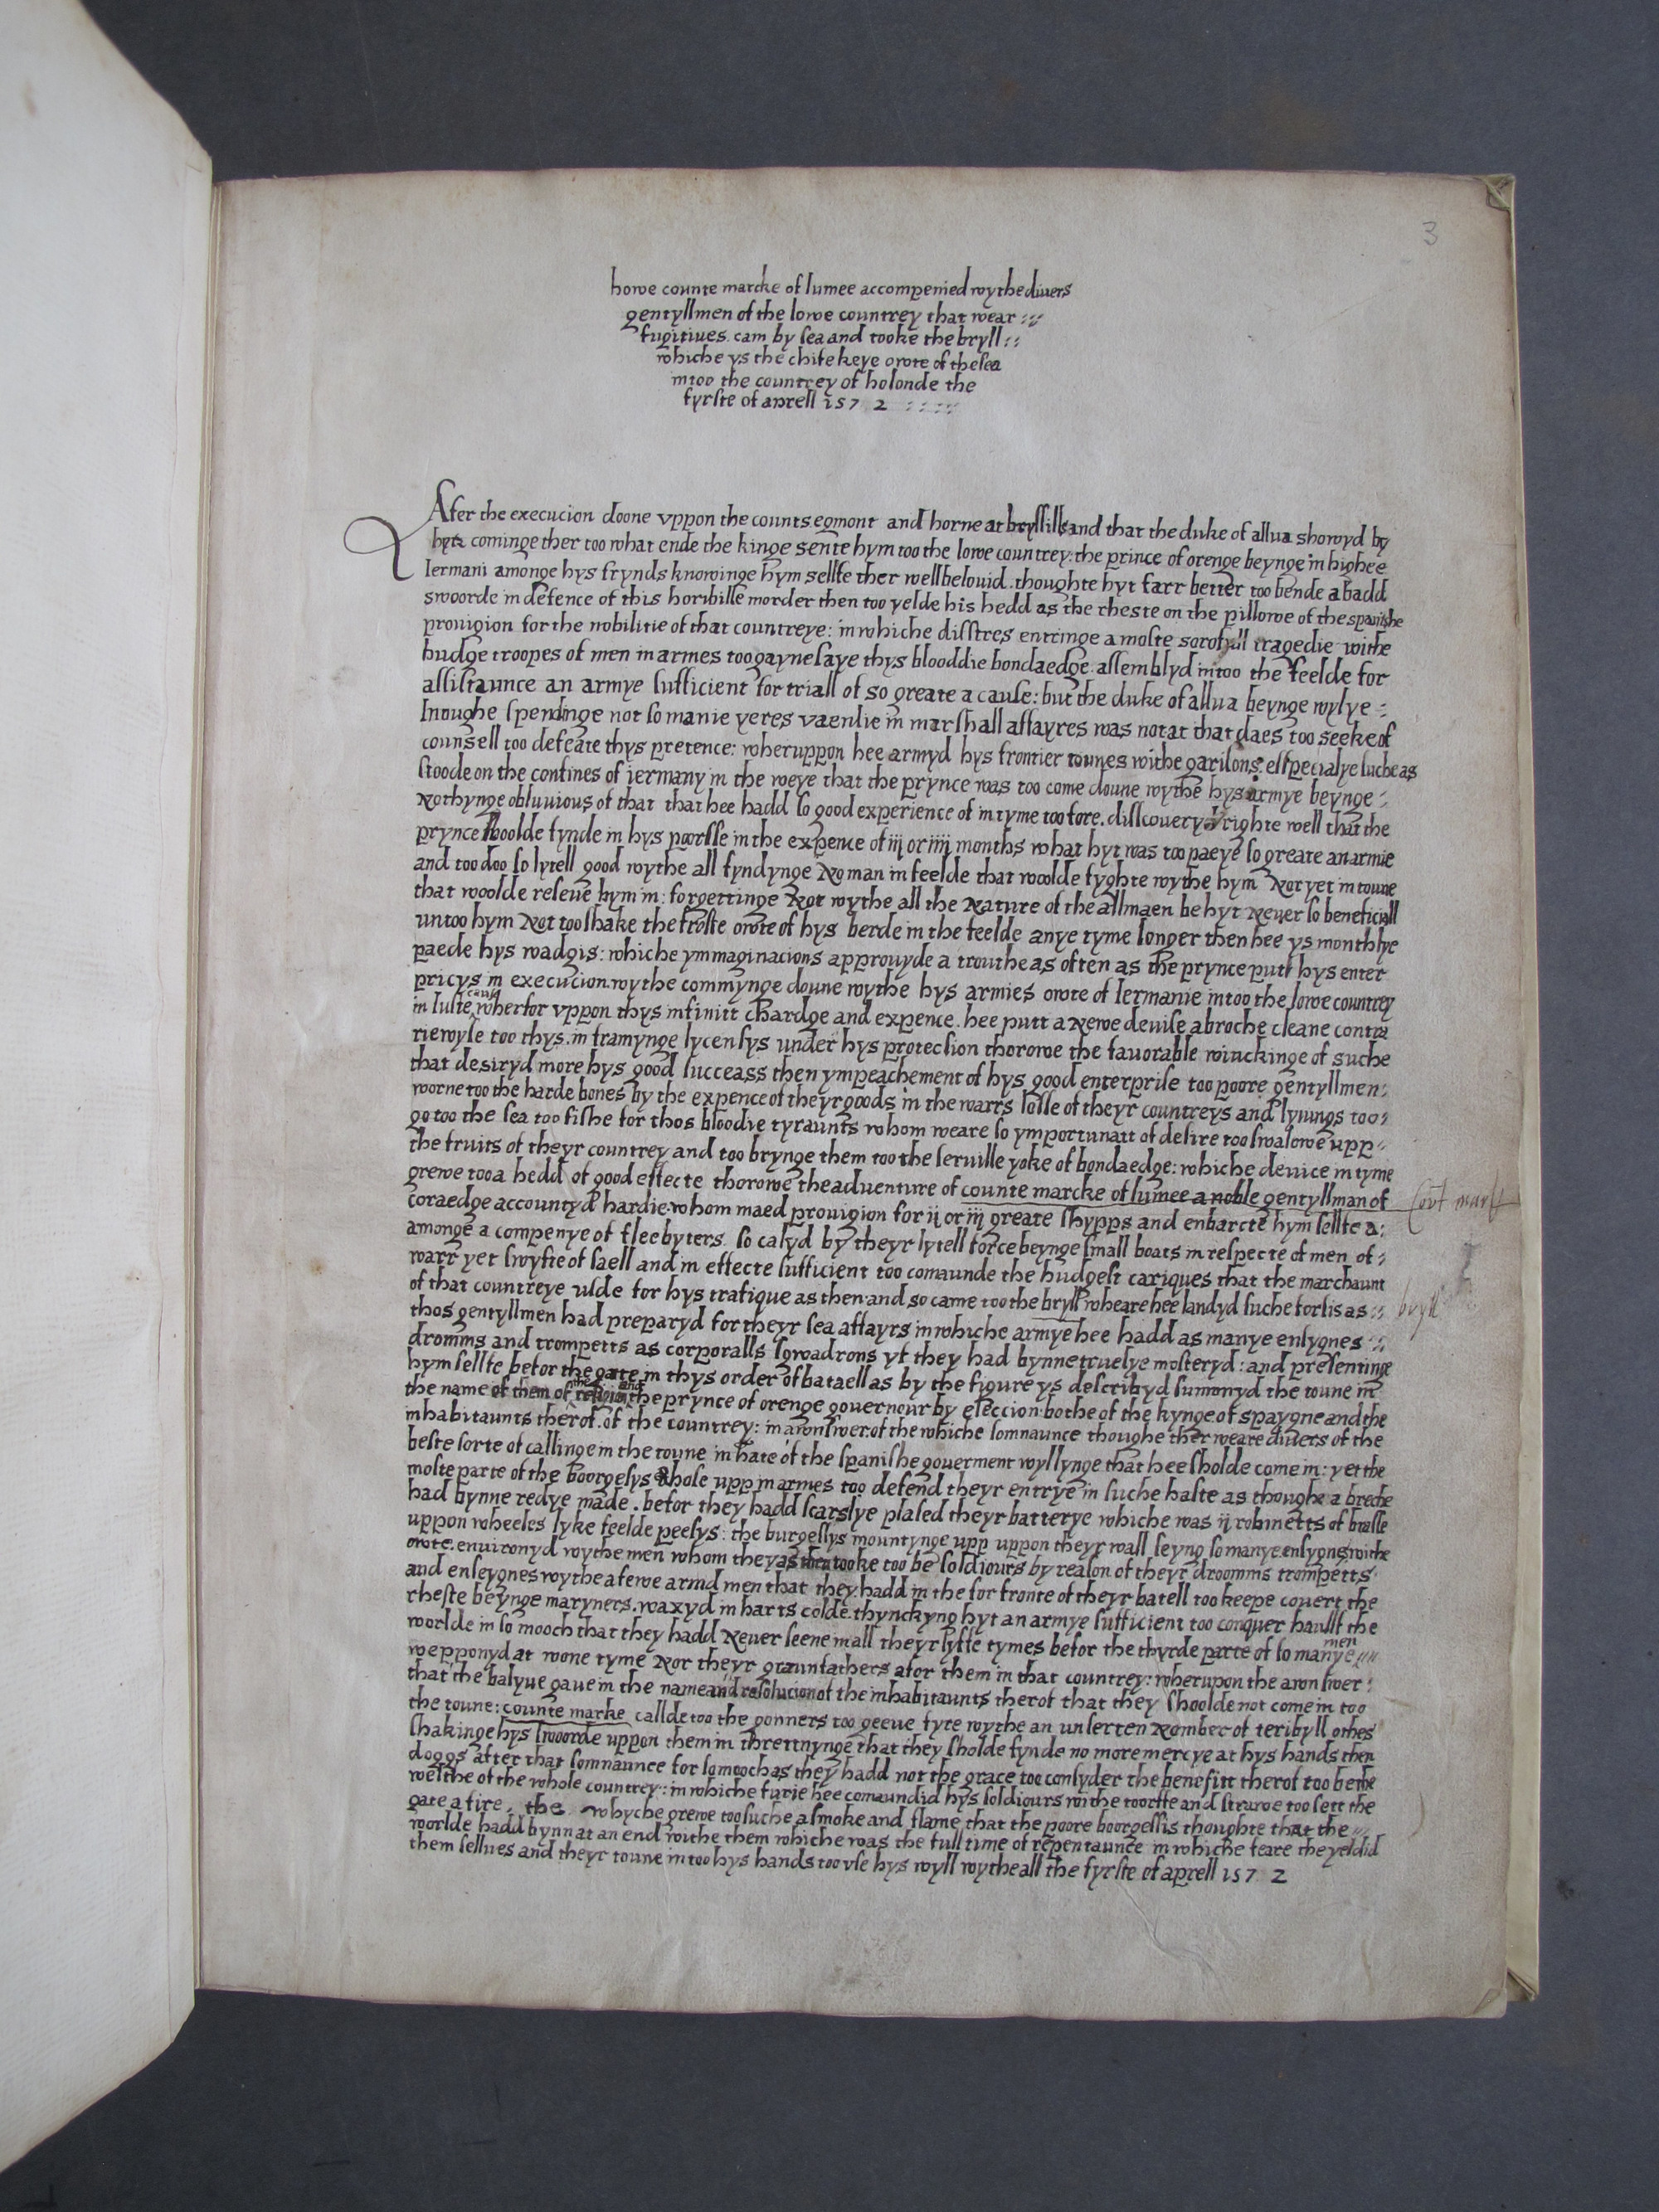 3
howe counte marcke of lumee accompenied wythe divers
gentyllmen of the lowe countrey that wear
fugitiues. cam by sea and tooke the bryll
whiche ys the chife keye owte of the sea
intoo the countrey of holonde the
fyrste of aprell 157 2
After the execucion doone vppon the counts egmont and horne at bryssills and that the duke of allua showyd by
hys cominge ther too what ende the kinge sente hym too the lowe countrey: the prince of orenge beynge in highee
Iermani amonge hys frynds knowinge hym sellfe ther well belouid. thoughte hyt farr better too bende a badd
swoorde in defence of this horibille morder then too yelde his hedd as the theste on the pillowe of the spanishe
prouigion for the nobilitie of that countreye: in whiche disstres entringe a moste sorofull tragedie withe
hudge troopes of men in armes too gaynesaye thys blooddie bondaedge. assemblyd intoo the feelde for
assistaunce an armye sufficient for triall of so greate a cause: but the duke of allua beynge wylye
Inoughe spendinge not so manie yeres vaenlie in marshall affayres was not at that daes too seeke of
counsell too defeate thys pretence: wheruppon hee armyd hys frontier tounes withe garisons. esspecialye suche as
stoode on the confines of iermany in the weye that the prynce was too come doune wythe hys armye beynge
Nothynge obliuious of that that hee hadd so good experience of in tyme too fore. disscouery righte well that the
prynce shoolde fynde in hys poorsse in the expence of iij or iiij months what hyt was too paeye so greate an armie
and too doo so lytell good wythe all fyndynge No man in feelde that woolde fyghte wythe hym Nor yet in toune
that woolde releue hym in: forgettinge Not wythe all the Nature of the allmaen be hyt Neuer so beneficiall
untoo hym Not too shake the froste owte of hys berde in the feelde anye tyme longer then hee ys monthlye
paede hys wadgis: whiche ymmaginacions approuyde a trouthe as often as the prynce putt hys enter
pricys in execucion. wythe commynge doune wythe hys armies owte of Iermanie intoo the lowe countrey
in luste cause wherfor vppon thys infinitt chardge and expence. hee putt a Newe deuise abroche cleane contra
riewyse too thys. in framynge lycensys under hys protecsion thorowe the fauorable winckinge of suche
that desiryd more hys good succeass then ympeachement of hys good enterprise too poore gentyllmen
woorne too the harde bones by the expence of theyr goods in the warrs losse of theyr countreys and lyuings too
go too the sea too fishe for thos bloodie tyraunts whom weare so ymportunatt of desire too swalowe upp
the fruits of theyr countrey and too brynge them too the seruille yoke of bondaedge: whiche deuice in tyme
grewe too a hedd of good effecte thorowe the aduenture of counte marcke of lumee a noble gentyllman of
coraedge accountyd hardie. whom maed prouigion for ij or iij greate shypps and enbarcte hym sellfe a
amonge a compenye of fleebyters. so calyd by theyr lytell force beynge small boats in respecte of men of
warr yet swyfte of saell and in effecte sufficient too comaunde the hudgest cariques that the marchaunt
of that countreye usde for hys trafique as then. and so came too the bryll wheare hee landyd suche forsis as
bryll
thos gentyllmen had preparyd for theyr sea affayrs in whiche armye hee hadd as manye ensygnes
dromms and trompetts as corporalls sqwadrons yf they had bynne truelye mosteryd: and presentinge
hym sellfe befor the gate in thys order of bataell as by the figure ys describyd sumonyd the toune in
the name of them of the religion and the prynce of orenge gouernour by eleccion. bothe of the kynge of spaygne and the
inhabitaunts therof. of the countrey: in awonswer of the whiche somnaunce thoughe ther weare diuers of the
beste sorte of callinge in the toune in hate of the spanishe gouerment wyllynge that hee sholde come in: yet the
moste parte of the boorgesys whose upp in armes too defend theyr entrye in suche haste as thoughe a breche
had bynne redye made. befor they hadd scarslye plased theyr batterye whiche was ij robinetts of brasse
uppon wheeles lyke feelde peesys: the burgessys mountynge upp uppon theyr wall seyng so manye ensygnes withe
owte. enuironyd wythe men whom they as then tooke too be soldiours by reason of theyr droomms trompetts
and enseygnes wythe a fewe armd men that they hadd in the for fronte of theyr batell too keepe couert the
rheste beynge maryners. waxyd in harts colde. thynckyng hyt an armye sufficient too conquer haullf the
worlde in so mooch that they hadd Neuer seene in all theyr lyffe tymes befor the thyrde parte of so manye men
wepponyd at woone tyme Nor theyr graunfathers afor them in that countrey: wherupon the awonswer
that the balyue gaue in the name and resolucion of the inhabitaunts therof that they shoolde not come in too
the toune: counte marke callde too the gonners too geeue fyre wythe an unserten Nomber of teribyll othes
shakinge hys swoorde uppon them in threttnynge that they sholde fynde no more mercye at hys hands then
doggs after that somnaunce for so mooch as they hadd not the grace too consyder the benefitt therof too be the
welthe of the whole countrey: in whiche furie hee comaundid hys soldiours withe toorffe and strawe too sett the
gate a fire. the whyche grewe too suche a smoke and flame that the poore boorgessis thoughte that the
worlde hadd bynn at an end withe them whiche was the full time of repentaunce in whiche feare they yeldid
them sellues and theyr toune intoo hys hands too vse hys wyll wythe all the fyrste of aprell 157 2